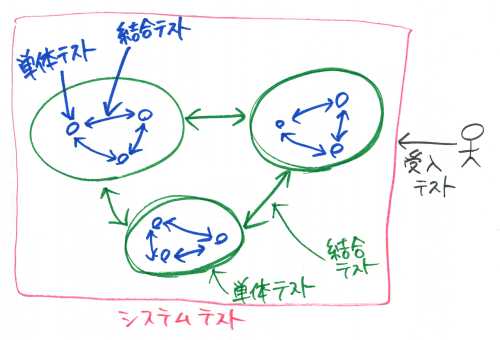 結合テスト
単体テスト
受入
テスト
結合
テスト
単体テスト
システムテスト